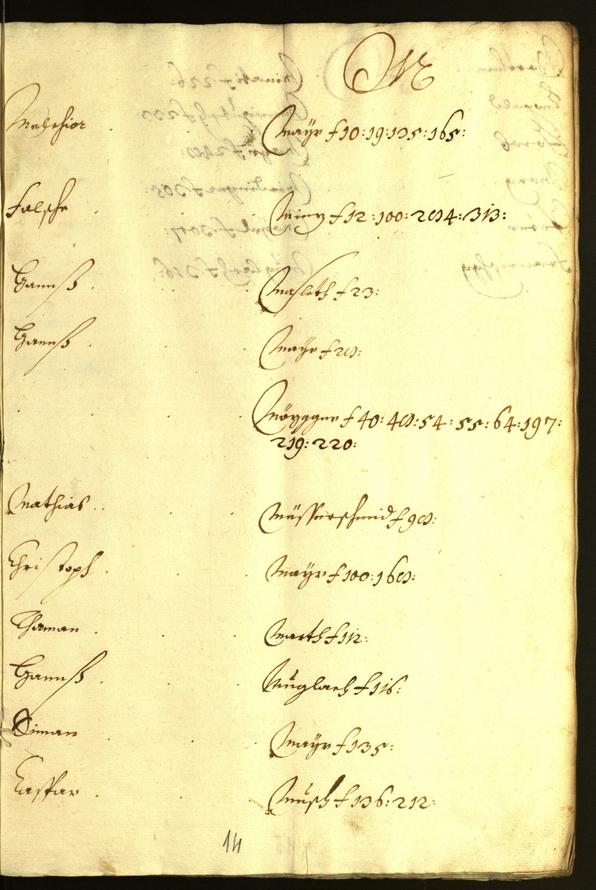 M
Melchior Mayr f 10: 19: 135: 165:
Falsche Minz f 12: 100: 204: 313:
Hannß Masleth f 23:
Hannß Mayr f 28:
Möygger f 40: 48: 54: 55: 64: 197:
219: 220:
Mathias Messerschmid f 98:
Christoph Mayr f 100: 168:
Thaman Marth f 112:
Hannß Muglach f 116:
Siman Mayr f 135:
Caspar Musch f 136: 212:
14